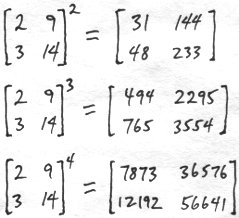 [2 9
3 14]^2 = [31 144
48 233]
[2 9
3 14]^3 = [494 2295
765 3554]
[2 9
3 14]^4 = [7873 36576
12192 56641]